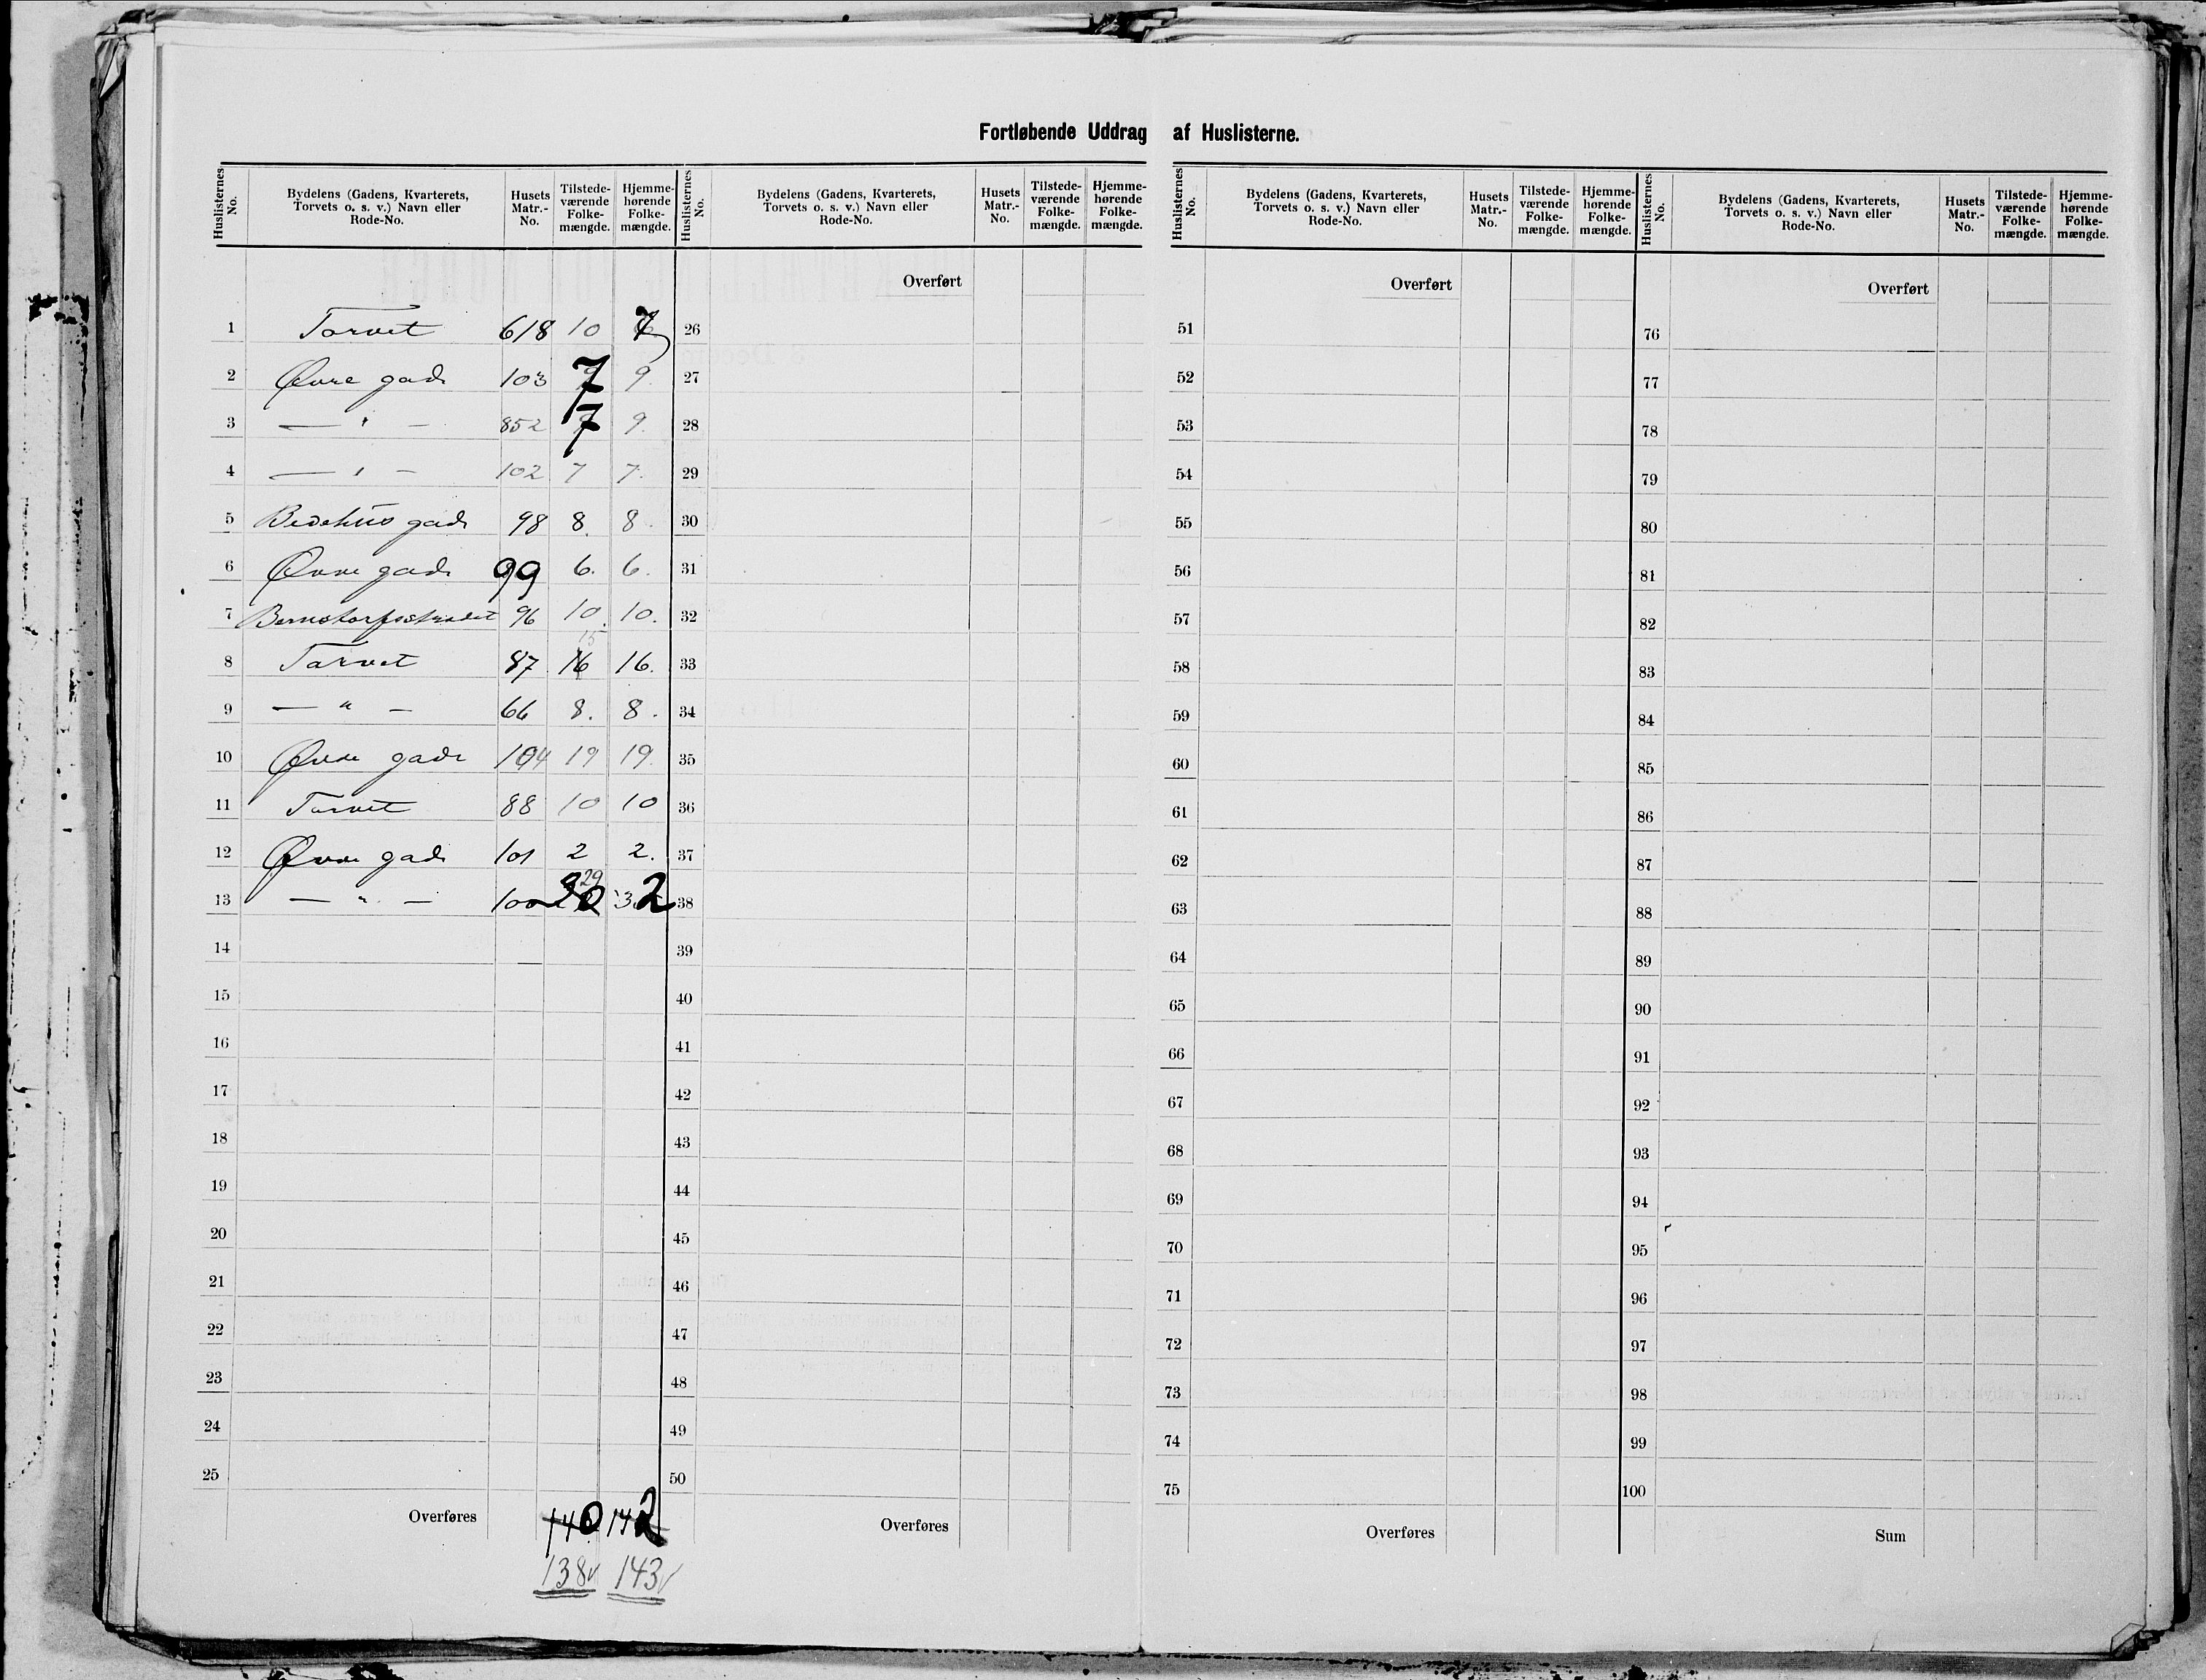 Fortløbende Uddrag af Huslisterne.
Huslisternes No. Bydelens (Gadens, Kvarterets, Torvets o. s. v.) Navn eller Rode-No. Husets Matr.-No. Tilstedeværende Folkemængde. Hjemmehørende Folkemængde.
Huslisternes No. Bydelens (Gadens, Kvarterets, Torvets o. s. v.) Navn eller Rode-No. Husets Matr.-No. Tilstedeværende Folkemængde. Hjemmehørende Folkemængde.
Huslisternes No. Bydelens (Gadens, Kvarterets, Torvets o. s. v.) Navn eller Rode-No. Husets Matr.-No. Tilstedeværende Folkemængde. Hjemmehørende Folkemængde.
Huslisternes No. Bydelens (Gadens, Kvarterets, Torvets o. s. v.) Navn eller Rode-No. Husets Matr.-No. Tilstedeværende Folkemængde. Hjemmehørende Folkemængde.
Overført Overført Overført
1 Torvet 618 10 7 26 51 76
2 Øvre gade 103 7 9. 27 52 77
3 — " — 852 7 9. 28 53 78
4 — " — 102 7 7. 29 54 79
5 Bedehus gade 98 8. 8. 30 55 80
6 Øvre gade 99 6. 6. 31 56 81
7 Bernstorfsstrædet 96 10. 10. 32 57 82
15
8 Torvet 87 16 16. 33 58 83
9 — " — 66 8. 8. 34 59 84
10 Øvre gade 104 19 19. 35 60 85
11 Torvet 88 10 10 36 61 86
12 Øvre gade 101 2 2. 37 62 87
29
13 — " — 100 30 32 38 63 88
14 39 64 89
15 40 65 90
16 41 66 91
17 42 67 92
18 43 68 93
19 44 69 94
20 45 70 95
21 46 71 96
22 47 72 97
23 48 73 98
24 49 74 99
25 50 75 100
Overføres 140 142 Overføres Overføres Sum
138 143